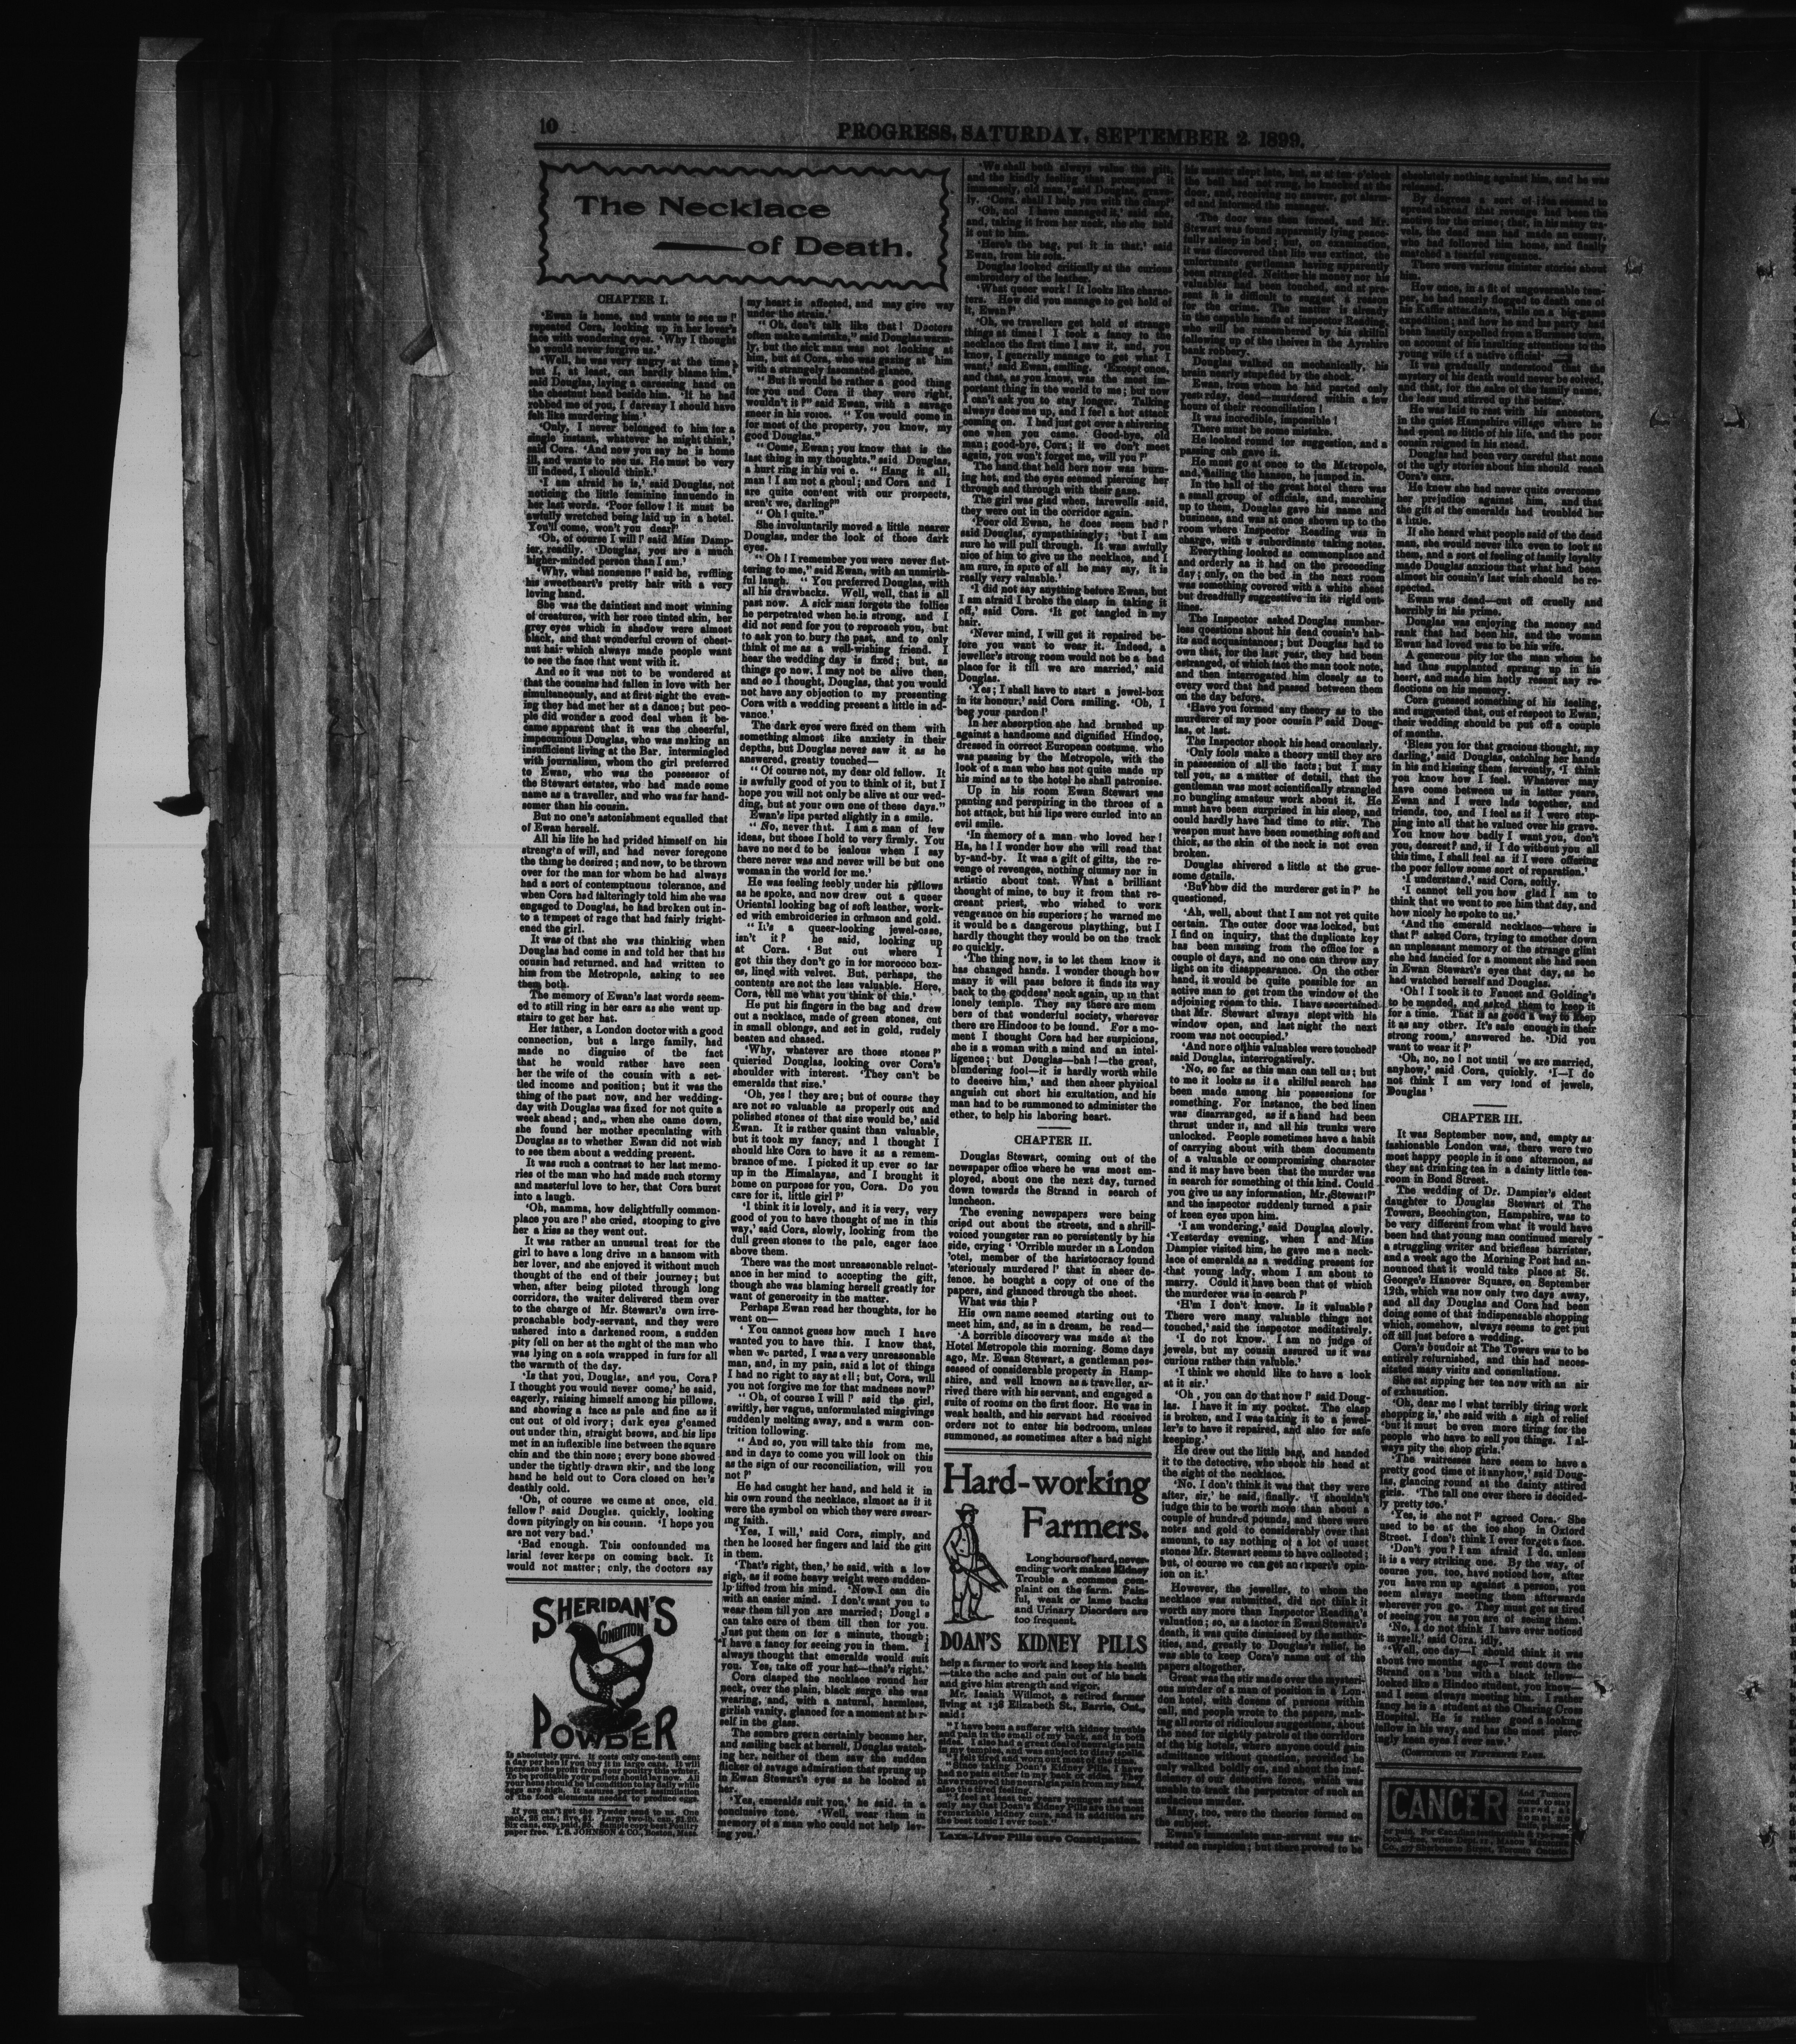 10
PROGRESS, SATURDAY, SEPTEMBER 2, 1899.
The Necklace
of Death.
CHAPTER I.
'Ewan is home, and wants to see us!'
repeated Cora, looking up in her lover's
face with wondering eyes. 'Why I thought
he would never forgive us.'
'Well, he was very angry at the time,
but I, at least, can hardly blame him,'
said Douglas, laying a caressing hand on
the chestnut head beside him. 'If he had
robbed me of you, I daresay I should have
felt like murdering him.'
'Only, I never belonged to him for a
single instant, whatever he might think,'
said Cora. 'And now you say he is home
ill, and wants to see us. He must be very
ill indeed, I should think.'
'I am afraid he is,' said Douglas, not
noticing the little feminine innuendo in
her last words. 'Poor fellow! it must be
awfully wretched being laid up in a hotel.
You'll come, won't you dear?'
'Oh, of course I will!' said Miss Damp-
ier, readily. 'Douglas, you are a much
higher-minded person than I am.'
'Why, what nonsense!' said he, ruffling
his sweetheart's pretty hair with a very
loving hand.
She was the daintiest and most winning
of creatures, with her rose tinted skin, her
grey eyes which in shadow were almost
black, and that wonderful crown of chest-
nut hair which always made people want
to see the face that went with it.
And so it was not to be wondered at
that the cousins had fallen in love with her
simultaneously, and at first sight the even-
ing they had met her at a dance; but peo-
ple did wonder a good deal when it be-
came apparent that it was the cheerful,
impecunious Douglas, who was making an
insufficient living at the Bar, intermingled
with journalism, whom the girl preferred
to Ewan, who was the possessor of
the Stewart estates, who had made some
name as a traveller, and who was far hand-
somer than his cousin.
But no one's astonishment equalled that
of Ewan herself.
All his life he had prided himself on his
strength of will, and had never foregone
the thing he desired; and now, to be thrown
over for the man for whom he had always
had a sort of contemptuous tolerance, and
when Cora had falteringly told him she was
engaged to Douglas, he had broken out in-
to a tempest of rage that had fairly fright-
ened the girl.
It was of that she was thinking when
Douglas had come in and told her that his
cousin had returned, and had written to
him from the Metropole, asking to see
them both.
The memory of Ewan's last words seem-
ed to still ring in her ears as she went up
stairs to get her hat.
Her father, a London doctor with a good
connection, but a large family, had
made no disguise of the fact
that he would rather have seen
her the wife of the cousin with a set-
tled income and position; but it was the
thing of the past now, and her wedding-
day with Douglas was fixed for not quite a
week ahead; and, when she came down,
she found her mother speculating with
Douglas as to whether Ewan did not wish
to see them about a wedding present.
It was such a contrast to her last memo-
ries of the man who had made such stormy
and masterful love to her, that Cora burst
into a laugh.
'Oh, mamma, how delightfully common-
place you are!' she cried, stooping to give
her a kiss as they went out.
It was rather an unusual treat for the
girl to have a long drive in a hansom with
her lover, and she enjoyed it without much
thought of the end of their journey; but
when, after being piloted through long
corridors, the waiter delivered them over
to the charge of Mr. Stewart's own irre-
proachable body-servant, and they were
ushered into a darkened room, a sudden
pity fell on her at the sight of the man who
was lying on a sofa wrapped in furs for all
the warmth of the day.
'Is that you, Douglas, and you, Cora?
I thought you would never come,' he said,
eagerly, raising himself among his pillows,
and showing a face as pale and fine as if
cut out of old ivory; dark eyes gleamed
out under thin, straight brows, and his lips
met in an inflexible line between the square
chin and the thin nose; every bone showed
under the tightly-drawn skin, and the long
hand he held out to Cora closed on her's
deathly cold.
'Oh, of course we came at once, old
fellow!' said Douglas, quickly, looking
down pityingly on his cousin. 'I hope you
are not very bad.'
'Bad enough. This confounded ma
larial fever keeps on coming back. It
would not matter; only, the doctors say
SHERIDAN'S
CONDITION
POWDER
Is absolutely pure. It costs only one-tenth cent
a day per hen if you buy it in large cans. It will
increase the profit from your poultry this winter.
To be profitable your pullets should lay now. All
your hens should be in condition to lay daily while
eggs are high. It assures perfect assimilation
of the food elements needed to produce eggs.
If you can't get the Powder send to us. One
pack, 25 cts.; five, $1. Large two-lb. can, $1.20.
Six cans, exp. paid, $5. Sample copy best Poultry
paper free. I. S. JOHNSON & CO., Boston, Mass.
my heart is affected, and may give way
under the strain.'
"Oh, don't talk like that! Doctors
often make a mistake," said Douglas warm-
ly, but the sick man was not looking at
him, but at Cora, who was gazing at him
with a strangely fascinated glance.
"But it would be rather a good thing
for you and Cora if they were right,
wouldn't it?" said Ewan, with a savage
sneer in his voice. "You would come in
for most of the property, you know, my
good Douglas."
"Come, Ewan; you know that is the
last thing in my thoughts." said Douglas,
a hurt ring in his voi e. "Hang it all,
man! I am not a ghoul; and Cora and I
are quite content with our prospects,
aren't we, darling?"
"Oh! quite."
She involuntarily moved a little nearer
Douglas, under the look of those dark
eyes.
"Oh! I remember you were never flat-
tering to me," said Ewan, with an unmirth-
ful laugh. "You preferred Douglas, with
all his drawbacks. Well, well, that is all
past now. A sick man forgets the follies
he perpetrated when he is strong, and I
did not send for you to reproach you, but
to ask you to bury the past, and to only
think of me as a well-wishing friend. I
hear the wedding day is fixed; but, as
things go now, I may not be alive then,
and so I thought, Douglas, that you would
not have any objection to my presenting
Cora with a wedding present a little in ad-
vance.'
The dark eyes were fixed on them with
something almost like anxiety in their
depths, but Douglas never saw it as he
answered, greatly touched—
"Of course not, my dear old fellow. It
is awfully good of you to think of it, but I
hope you will not only be alive at our wed-
ding, but at your own one of these days."
Ewan's lips parted slightly in a smile.
"No, never that. I am a man of few
ideas, but those I hold to very firmly. You
have no need to be jealous when I say
there never was and never will be but one
woman in the world for me.'
He was feeling feebly under his pillows
as he spoke, and now drew out a queer
Oriental looking bag of soft leather, work-
ed with embroideries in crimson and gold.
"It's a queer-looking jewel-case,
isn't it? he said, looking up
at Cora. 'But out where I
got this they don't go in for morocco box-
es, lined with velvet. But, perhaps, the
contents are not the less valuable. Here,
Cora, tell me what you think of this.'
He put his fingers in the bag and drew
out a necklace, made of green stones, cut
in small oblongs, and set in gold, rudely
beaten and chased.
'Why, whatever are those stones?'
queried Douglas, looking over Cora's
shoulder with interest. 'They can't be
emeralds that size.'
'Oh, yes! they are; but of course they
are not so valuable as properly cut and
polished stones of that size would be,' said
Ewan. It is rather quaint than valuable,
but it took my fancy, and I thought I
should like Cora to have it as a remem-
brance of me. I picked it up ever so far
up in the Himalayas, and I brought it
home on purpose for you, Cora. Do you
care for it, little girl?'
'I think it is lovely, and it is very, very
good of you to have thought of me in this
way,' said Cora, slowly, looking from the
dull green stones to the pale, eager face
above them.
There was the most unreasonable reluct-
ance in her mind to accepting the gift,
though she was blaming herself greatly for
want of generosity in the matter.
Perhaps Ewan read her thoughts, for he
went on—
'You cannot guess how much I have
wanted you to have this. I know that,
when we parted, I was a very unreasonable
man, and, in my pain, said a lot of things
I had no right to say at all; but, Cora, will
you not forgive me for that madness now?'
"Oh, of course I will!' said the girl,
swiftly, her vague, unformulated misgivings
suddenly melting away, and a warm con-
trition following.
"And so, you will take this from me,
and in days to come you will look on this
as the sign of our reconciliation, will you
not?'
He had caught her hand, and held it in
his own round the necklace, almost as if it
were the symbol on which they were swear-
ing faith.
'Yes, I will,' said Cora, simply, and
then he loosed her fingers and laid the gift
in them.
'That's right, then,' he said, with a low
sigh, as if some heavy weight were sudden-
ly lifted from his mind. 'Now I can die
with an easier mind. I don't want you to
wear them till you are married; Dougl s
can take care of them till then for you.
Just put them on for a minute, though;
I have a fancy for seeing you in them. I
always thought that emeralds would suit
you. Yes, take off your hat—that's right.'
Cora clasped the necklace round her
neck, over the plain, black serge she was
wearing, and, with a natural, harmless,
girlish vanity, glanced for a moment at her-
self in the glass.
The sombre green certainly became her,
and smiling back at herself, Douglas watch-
ing her, neither of them saw the sudden
flicker of savage admiration that sprung up
in Ewan Stewart's eyes as he looked at
her.
'Yes, emeralds suit you,' he said, in a
conclusive tone. 'Well, wear them in
memory of a man who could not help lov-
ing you.'
'We shall both always value the gift,
and the kindly feeling that prompted it
immensely, old man,' said Douglas, grave-
ly. 'Cora, shall I help you with the clasp?'
'Oh, no! I have managed it,' said she,
and, taking it from her neck, she she held
it out to him.
'Here's the bag, put it in that,' said
Ewan, from his sofa.
Douglas looked critically at the curious
embroidery of the leather.
'What queer work! It looks like charac-
ters. How did you manage to get hold of
it, Ewan?'
'Oh, we travellers get hold of strange
things at times! I took a fancy to the
necklace the first time I saw it, and, you
know, I generally manage to get what I
want,' said Ewan, smiling. 'Except once,
and that, as you know, was the most im-
portant thing in the world to me; but now
I can't ask you to stay longer. Talking
always does me up, and I feel a hot attack
coming on. I had just got over a shivering
one when you came. Good-bye, old
man; good-bye, Cora; if we don't meet
again, you won't forget me, will you?'
The hand that held hers now was burn-
ing hot, and the eyes seemed piercing her
through and through with their gaze.
The girl was glad when, farewells said,
they were out in the corridor again.
'Poor old Ewan, he does seem bad!'
said Douglas, sympathisingly; 'but I am
sure he will pull through. It was awfully
nice of him to give us the necklace, and I
am sure, in spite of all he may say, it is
really very valuable.'
'I did not say anything before Ewan, but
I am afraid I broke the clasp in taking it
off,' said Cora. 'It got tangled in my
hair.
'Never mind, I will get it repaired be-
fore you want to wear it. Indeed, a
jeweller's strong room would not be a bad
place for it till we are married,' said
Douglas.
'Yes; I shall have to start a jewel-box
in its honour,' said Cora smiling. 'Oh, I
beg your pardon!'
In her absorption she had brushed up
against a handsome and dignified Hindoo,
dressed in correct European costume, who
was passing by the Metropole, with the
look of a man who has not quite made up
his mind as to the hotel he shall patronise.
Up in his room Ewan Stewart was
panting and perspiring in the throes of a
hot attack, but his lips were curled into an
evil smile.
'In memory of a man who loved her!
Ha, ha! I wonder how she will read that
by-and-by. It was a gift of gifts, the re-
venge of revenges, nothing clumsy nor in-
artistic about that. What a brilliant
thought of mine, to buy it from that re-
creant priest, who wished to work
vengeance on his superiors; he warned me
it would be a dangerous plaything, but I
hardly thought they would be on the track
so quickly.
'The thing now, is to let them know it
has changed hands. I wonder though how
many it will pass before it finds its way
back to the goddess' neck again, up in that
lonely temple. They say there are mem
bers of that wonderful society, wherever
there are Hindoos to be found. For a mo-
ment I thought Cora had her suspicions,
she is a woman with a mind and an intel-
ligence; but Douglas—bah!—the great,
blundering fool—it is hardly worth while
to deceive him,' and then sheer physical
anguish cut short his exultation, and his
man had to be summoned to administer the
ether, to help his laboring heart.
CHAPTER II.
Douglas Stewart, coming out of the
newspaper office where he was most em-
ployed, about one the next day, turned
down towards the Strand in search of
luncheon.
The evening newspapers were being
cried out about the streets, and a shrill-
voiced youngster ran so persistently by his
side, crying ' 'Orrible murder in a London
'otel, member of the haristocracy found
'steriously murdered!' that in sheer de-
fence, he bought a copy of one of the
papers, and glanced through the sheet.
What was this?
His own name seemed starting out to
meet him, and, as in a dream, he read—
'A horrible discovery was made at the
Hotel Metropole this morning. Some days
ago, Mr. Ewan Stewart, a gentleman pos-
sessed of considerable property in Hamp-
shire, and well known as a traveller, ar-
rived there with his servant, and engaged a
suite of rooms on the first floor. He was in
weak health, and his servant had received
orders not to enter his bedroom, unless
summoned, as sometimes after a bad night
Hard-working
Farmers.
Long hours of hard, never-
ending work makes Kidney
Trouble a common com-
plaint on the farm. Pain-
ful, weak or lame backs
and Urinary Disorders are
too frequent.
DOAN'S KIDNEY PILLS
help a farmer to work and keep his health
—take the ache and pain out of his back
and give him strength and vigor.
Mr. Isaiah Willmot, a retired farmer
living at 138 Elizabeth St., Barrie, Ont.,
said:
"I have been a sufferer with kidney trouble
and pain in the small of my back, and in both
sides. I also had a great deal of neuralgia pain
in my temples, and was subject to dizzy spells.
I felt tired and worn out most of the time.
"Since taking Doan's Kidney Pills, I have
had no pain either in my back or sides. They
have removed the neuralgia pain from my head,
also the tired feeling.
"I feel at least ten years younger and can
only say that Doan's Kidney Pills are the most
remarkable kidney cure, and in addition are
the best tonic I ever took."
Laxa-Liver Pills cure Constipation.
his master slept late, but, as at ten o'clock
the bell had not rung, he knocked at the
door, and, receiving no answer, got alarm-
ed and informed the manager.
'The door was then forced, and Mr.
Stewart was found apparently lying peace-
fully asleep in bed; but, on examination,
it was discovered that life was extinct, the
unfortunate gentleman having apparently
been strangled. Neither his money nor his
valuables had been touched, and at pre-
sent it is difficult to suggest a reason
for the crime. The matter is already
in the capable hands of Inspector Reading,
who will be remembered by his skilful
following up of the theives in the Ayrshire
bank robbery.
Douglas walked on mechanically, his
brain nearly stupefied by the shock.
Ewan, from whom he had parted only
yesterday, dead—murdered within a few
hours of their reconciliation!
It was incredible, impossible!
There must be some mistake.
He looked round for suggestion, and a
passing cab gave it.
He must go at once to the Metropole,
and, hailing the hansom, he jumped in.
In the hall of the great hotel there was
a small group of officials, and, marching
up to them, Douglas gave his name and
business, and was at once shown up to the
room where Inspector Reading was in
charge, with a subordinate taking notes.
Everything looked as commonplace and
and orderly as it had on the preceeding
day; only, on the bed in the next room
was something covered with a white sheet
but dreadfully suggestive in its rigid out-
lines.
The Inspector asked Douglas number-
less questions about his dead cousin's hab-
its and acquaintances; but Douglas had to
own that, for the last year, they had been
estranged, of which fact the man took note,
and then interrogated him closely as to
every word that had passed between them
on the day before.
'Have you formed any theory as to the
murderer of my poor cousin?' said Doug-
las, ot last.
The Inspector shook his head oracularly.
'Only fools make a theory until they are
in possession of all the facts; but I may
tell you, as a matter of detail, that the
gentleman was most scientifically strangled
no bungling amateur work about it. He
must have been surprised in his sleep, and
could hardly have had time to stir. The
weapon must have been something soft and
thick, as the skin of the neck is not even
broken.
Douglas shivered a little at the grue-
some details.
'But how did the murderer get in?' he
questioned.
'Ah, well, about that I am not yet quite
certain. The outer door was locked, but
I find on inquiry, that the duplicate key
has been missing from the office for a
couple of days, and no one can throw any
light on its disappearance. On the other
hand, it would be quite possible for an
active man to get from the window of the
adjoining room to this. I have ascertained
that Mr. Stewart always slept with his
window open, and last night the next
room was not occupied.'
'And none of his valuables were touched?'
said Douglas, interrogatively.
'No, so far as this man can tell us; but
to me it looks as it a skilful search has
been made among his possessions for
something. For instance, the bed linen
was disarranged, as if a hand had been
thrust under it, and all his trunks were
unlocked. People sometimes have a habit
of carrying about with them documents
of a valuable or compromising character
and it may have been that the murder was
in search for something of this kind. Could
you give us any information, Mr. Stewart?'
and the inspector suddenly turned a pair
of keen eyes upon him.
'I am wondering,' said Douglas, slowly.
'Yesterday evening, when I and Miss
Dampier visited him, he gave me a neck-
lace of emeralds as a wedding present for
that young lady, whom I am about to
marry. Could it have been that of which
the murderer was in search?'
'H'm I don't know. Is it valuable?
There were many valuable things not
touched,' said the inspector meditatively.
'I do not know. I am no judge of
jewels, but my cousin assured us it was
curious rather than valuble.'
'I think we should like to have a look
at it sir.'
'Oh, you can do that now!' said Doug-
las. I have it in my pocket. The clasp
is broken, and I was taking it to a jewel-
ler's to have it repaired, and also for safe
keeping.'
He drew out the little bag, and handed
it to the detective, who shook his head at
the sight of the necklace.
'No. I don't think it was that they were
after, sir,' he said, finally. 'I shouldn't
judge this to be worth more than about a
couple of hundred pounds, and there were
notes and gold to considerably over that
amount, to say nothing of a lot of unset
stones Mr. Stewart seems to have collected;
but, of course we can get an expert's opin-
ion on it.'
However, the jeweller, to whom the
necklace was submitted, did not think it
worth any more than Inspector Reading's
valuation; so, as a factor in Ewan Stewart's
death, it was quite dismissed by the author-
ities, and, greatly to Douglas's relief, he
was able to keep Cora's name out of the
papers altogether.
Great was the stir made over the mysteri-
ous murder of a man of position in a Lon-
don hotel, with dozens of persons within
call, and people wrote to the papers, mak-
ing all sorts of ridiculous suggestions, about
the need for nightly patrols of the corridors
of the big hotels, where anyone could gain
admittance without question, provided he
only walked boldly on, and about the inef-
ficiency of our detective force, which was
unable to track the perpetrator of such an
audacious murder.
Many, too, were the theories formed on
the subject.
Ewan's immaculate man-servant was ar-
rested on suspicion; but there proved to be
absolutely nothing against him, and he was
released.
By degrees a sort of idea seemed to
spread abroad that revenge had been the
motive for the crime; that, in his many tra-
vels, the dead man had made an enemy,
who had followed him home, and finally
snatched a fearful vengeance.
There were various sinister stories about
him.
How once, in a fit of ungovernable tem-
per, he had nearly flogged to death one of
his Kaffir attendants, while on a big-game
expedition; and how he and his party had
been hastily expelled from a Burmese town
on account of his insulting attentions to the
young wife of a native official.
It was gradually understood that the
mystery of his death would never be solved,
and that, for the sake of the family name,
the less mud stirred up the better.
He was laid to rest with his ancestors,
in the quiet Hampshire village where he
had spent so little of his life, and the poor
cousin reigned in his stead.
Douglas had been very careful that none
of the ugly stories about him should reach
Cora's ears.
He knew she had never quite overcome
her prejudice against him, and that
the gift of the emeralds had troubled her
a little.
If she heard what people said of the dead
man, she would never like even to look at
them, and a sort of feeling of family loyalty
made Douglas anxious that what had been
almost his cousin's last wish should be re-
spected.
Ewan was dead—cut off cruelly and
horribly in his prime.
Douglas was enjoying the money and
rank that had been his, and the woman
Ewan had loved was to be his wife.
A generous pity for the man whom he
had thus supplanted sprang up in his
heart, and made him hotly resent any re-
flections on his memory.
Cora guessed something of his feeling,
and suggested that, out of respect to Ewan,
their wedding should be put off a couple
of months.
'Bless you for that gracious thought, my
darling,' said Douglas, catching her hands
in his and kissing them fervently, 'I think
you know how I feel. Whatever may
have come between us in latter years,
Ewan and I were lads together, and
friends, too, and I feel as if I were step-
ping into all that he valued over his grave.
You know how badly I want you, don't
you, dearest? and, if I do without you all
this time, I shall feel as if I were offering
the poor fellow some sort of reparation.'
'I understand,' said Cora, softly.
'I cannot tell you how glad I am to
think that we went to see him that day, and
how nicely he spoke to us.'
'And the emerald necklace—where is
that?' asked Cora, trying to smother down
an unpleasant memory of the strange glint
she had fancied for a moment she had seen
in Ewan Stewart's eyes that day, as he
had watched herself and Douglas.
'Oh! I took it to Faucet and Golding's
to be mended, and asked them to keep it
for a time. That is as good a way to keep
it as any other. It's safe enough in their
strong room,' answered he. 'Did you
want to wear it?'
'Oh, no, no! not until we are married,
anyhow,' said Cora, quickly. 'I—I do
not think I am very fond of jewels,
Douglas'
CHAPTER III.
It was September now, and, empty as
fashionable London was, there were two
most happy people in it one afternoon, as
they sat drinking tea in a dainty little tea-
room in Bond Street.
The wedding of Dr. Dampier's eldest
daughter to Douglas Stewart of The
Towers, Beechington, Hampshire, was to
be very different from what it would have
been had that young man continued merely
a struggling writer and briefless barrister,
and a week ago the Morning Post had an-
nounced that it would take place at St.
George's Hanover Square, on September
19th, which was now only two days away,
and all day Douglas and Cora had been
doing some of that indispensable shopping
which, somehow, always seems to get put
off till just before a wedding.
Cora's boudoir at The Towers was to be
entirely refurnished, and this had neces-
sitated many visits and consultations.
She sat sipping her tea now with an air
of exhaustion.
'Oh, dear me! what terribly tiring work
shopping is,' she said with a sigh of relief
'but it must be even more tiring for the
people who have to sell you things. I al-
ways pity the shop girls.'
'The waitresses here seem to have a
pretty good time of it anyhow,' said Doug-
las, glancing round at the dainty attired
girls. 'The tall one over there is decided-
ly pretty too.'
'Yes, is she not?' agreed Cora. She
used to be at the ice shop in Oxford
Street. I don't think I ever forget a face.
'Don't you? I am afraid I do, unless
it is a very striking one. By the way, of
course you, too, have noticed how, after
you have run up against a person, you
seem always meeting them afterwards
wherever you go. They must get as tired
of seeing you as you are of seeing them.'
'No, I do not think I have ever noticed
it myself,' said Cora, idly.
'Well, one day—I should think it was
about two months ago—I went down the
Strand on a 'bus with a black fellow—
looked like a Hindoo student, you know—
and I seem always meeting him. I rather
fancy he is a student at the Charing Cross
Hospital. He is rather good a looking
fellow in his way, and has the most pierc-
ingly keen eyes I ever saw.'
(CONTINUED ON FIFTEENTH PAGE.
CANCER
And Tumors
cured to stay
cured, at
home; no
knife, plaster
or pain. For Canadian testimonials & 130-page
book—free, write Dept. 11, MASON MEDICINE
Co., 577 Sherbourne Street, Toronto Ontario.